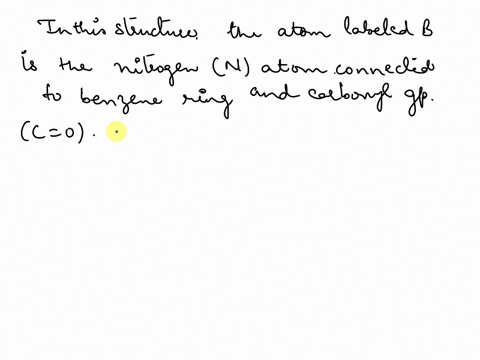 In this structure. the atom labeled B
is the nitrogen (N) atom connected
to benzene ring and carbonyl gp.
(C=O).